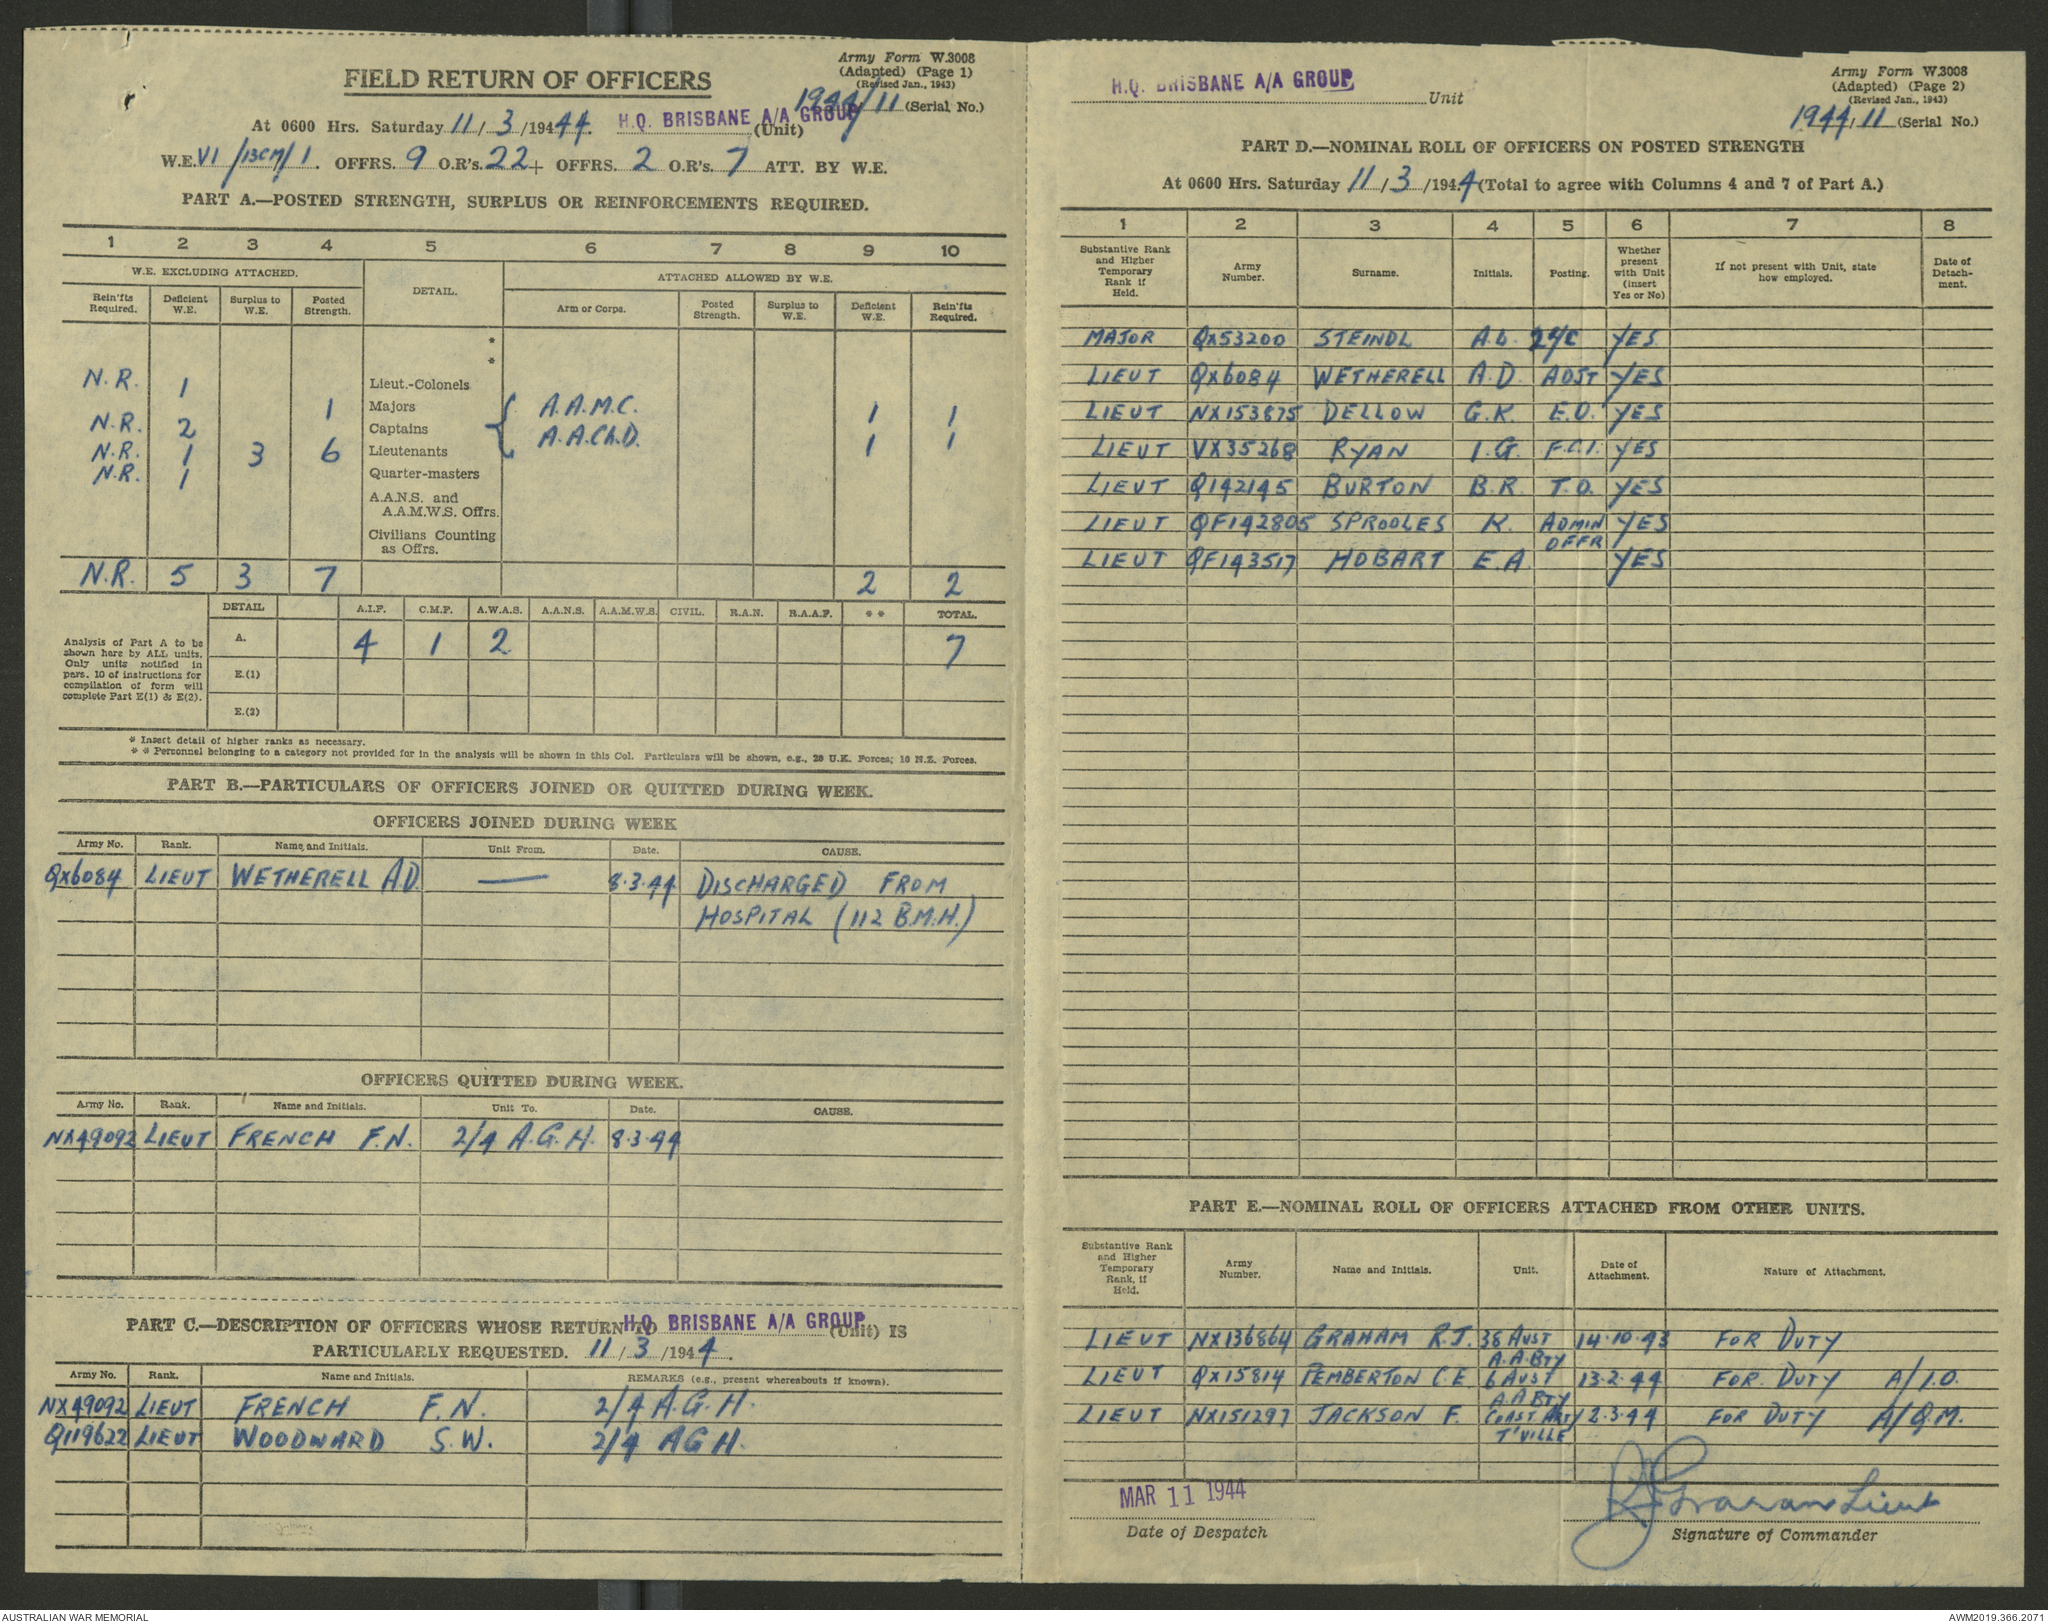 Army Form W.3008
(Adapted) (Page 1)
(Revised Jan., 1943)
FIELD RETURN OF OFFICERS
1944/11 (Serial No.)
At 0600 Hrs. Saturday 11/3/1944. H.Q. BRISBANE A/A GROUP (Unit)
W.E. VI/13CM/1. OFFRS. 9 O.R's. 22 + OFFRS. 2 O.R's. 7 ATT. BY W.E.
PART A.—POSTED STRENGTH, SURPLUS OR REINFORCEMENTS REQUIRED.
1 2 3 4 5 6 7 8 9 10
W.E. EXCLUDING ATTACHED. DETAIL. ATTACHED ALLOWED BY W.E.
Rein'fts Required. Deficient W.E. Surplus to W.E. Posted Strength. Arm or Corps. Posted Strength. Surplus to W.E. Deficient W.E. Rein'fts Required.
*
*
N.R. 1 Lieut.-Colonels
1 Majors A.A.M.C. 1 1
N.R. 2 Captains
N.R. 1 3 6 Lieutenants A.A.Ch.D. 1 1
N.R. 1 Quarter-masters
A.A.N.S. and
A.A.M.W.S. Offrs.
Civilians Counting
as Offrs.
N.R. 5 3 7 2 2
DETAIL A.I.F. C.M.F. A.W.A.S. A.A.N.S. A.A.M.W.S. CIVIL. R.A.N. R.A.A.F. * * TOTAL.
Analysis of Part A to be
shown here by ALL units.
Only units notified in
para. 10 of instructions for
compilation of form will
complete Part E(1) & E(2).
A. 4 1 2 7
E.(1)
E.(2)
* Insert detail of higher ranks as necessary.
* * Personnel belonging to a category not provided for in the analysis will be shown in this Col. Particulars will be shown, e.g., 28 U.K. Forces; 10 N.Z. Forces.
PART B.—PARTICULARS OF OFFICERS JOINED OR QUITTED DURING WEEK.
OFFICERS JOINED DURING WEEK
Army No. Rank. Name and Initials. Unit From. Date. CAUSE.
QX6084 LIEUT WETHERELL A.D. — 8.3.44 DISCHARGED FROM
HOSPITAL (112 B.M.H.)
OFFICERS QUITTED DURING WEEK.
Army No. Rank. Name and Initials. Unit To. Date. CAUSE.
NX49092 LIEUT FRENCH F.N. 2/4 A.G.H. 8.3.44
PART C.—DESCRIPTION OF OFFICERS WHOSE RETURN TO H.Q. BRISBANE A/A GROUP (Unit) IS
PARTICULARLY REQUESTED. 11/3/1944.
Army No. Rank. Name and Initials. REMARKS (e.g., present whereabouts if known).
NX49092 LIEUT FRENCH F.N. 2/4 A.G.H.
Q119622 LIEUT WOODWARD S.W. 2/4 AGH.
H.Q. BRISBANE A/A GROUP Unit
Army Form W.3008
(Adapted) (Page 2)
(Revised Jan., 1943)
1944/11 (Serial No.)
PART D.—NOMINAL ROLL OF OFFICERS ON POSTED STRENGTH
At 0600 Hrs. Saturday 11/3/1944 (Total to agree with Columns 4 and 7 of Part A.)
1 2 3 4 5 6 7 8
Substantive Rank and Higher Temporary Rank if Held. Army Number. Surname. Initials. Posting. Whether present with Unit (insert Yes or No) If not present with Unit, state how employed. Date of Detach-ment.
MAJOR QX53200 STEINDL A.L. 2i/c YES
LIEUT QX6084 WETHERELL A.D. ADJT YES
LIEUT NX153875 DELLOW G.K. E.O. YES
LIEUT VX35268 RYAN I.G. F.C.I. YES
LIEUT Q142145 BURTON B.R. T.O. YES
LIEUT QF142805 SPROOLES K. ADMIN OFFR YES
LIEUT QF143517 HOBART E.A. YES
PART E.—NOMINAL ROLL OF OFFICERS ATTACHED FROM OTHER UNITS.
Substantive Rank and Higher Temporary Rank, if Held. Army Number. Name and Initials. Unit. Date of Attachment. Nature of Attachment.
LIEUT NX136864 GRAHAM R.J. 38 AUST A.A. BTY 14.10.43 FOR DUTY
LIEUT QX15814 PEMBERTON C.E. 6 AUST A.A BTY 13.2.44 FOR DUTY A/I.O.
LIEUT NX151297 JACKSON F. COAST ARTY T'VILLE 2.3.44 FOR DUTY A/Q.M.
MAR 11 1944
RJ Graham Lieut
Date of Despatch
Signature of Commander
AUSTRALIAN WAR MEMORIAL
AWM2019.366.2071